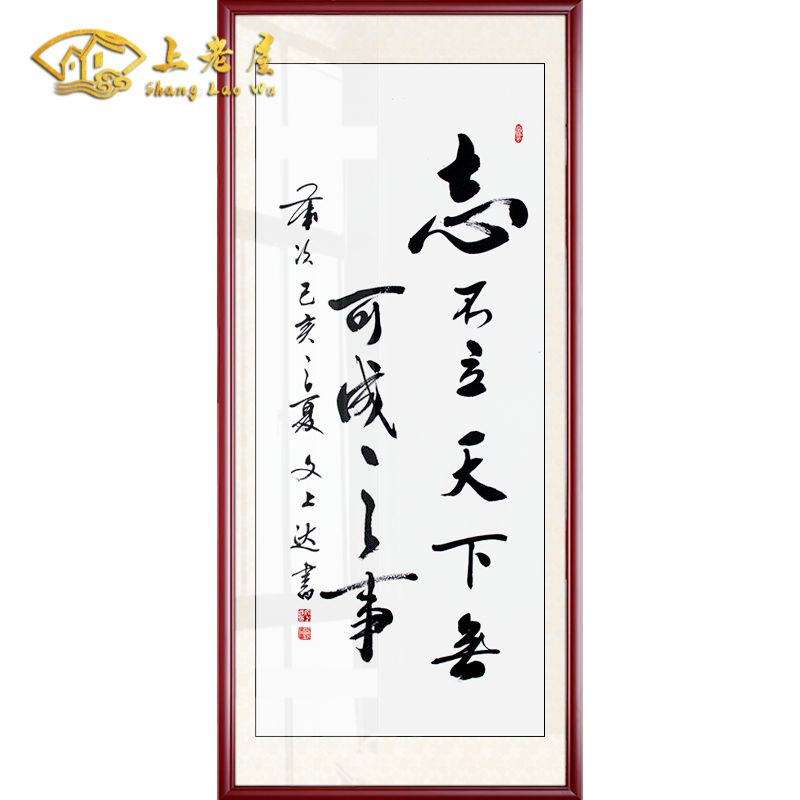 上老屋
Shang Lao Wu
志不立天下無
可成之事
岁次己亥之夏文上达書